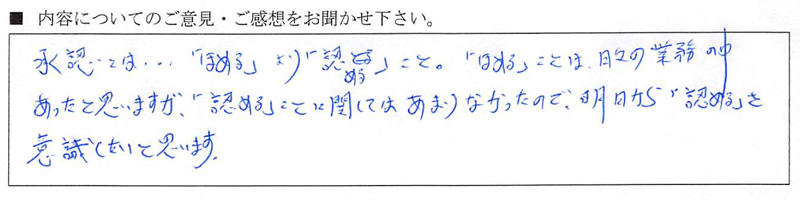 ■ 内容についてのご意見・ご感想をお聞かせ下さい。
承認とは…「ほめる」より「認める」こと。「ほめる」ことは、日々の業務の中
あったと思いますが、「認める」ことに関してはあまりなかったので、明日から「認める」を
意識したいと思います。